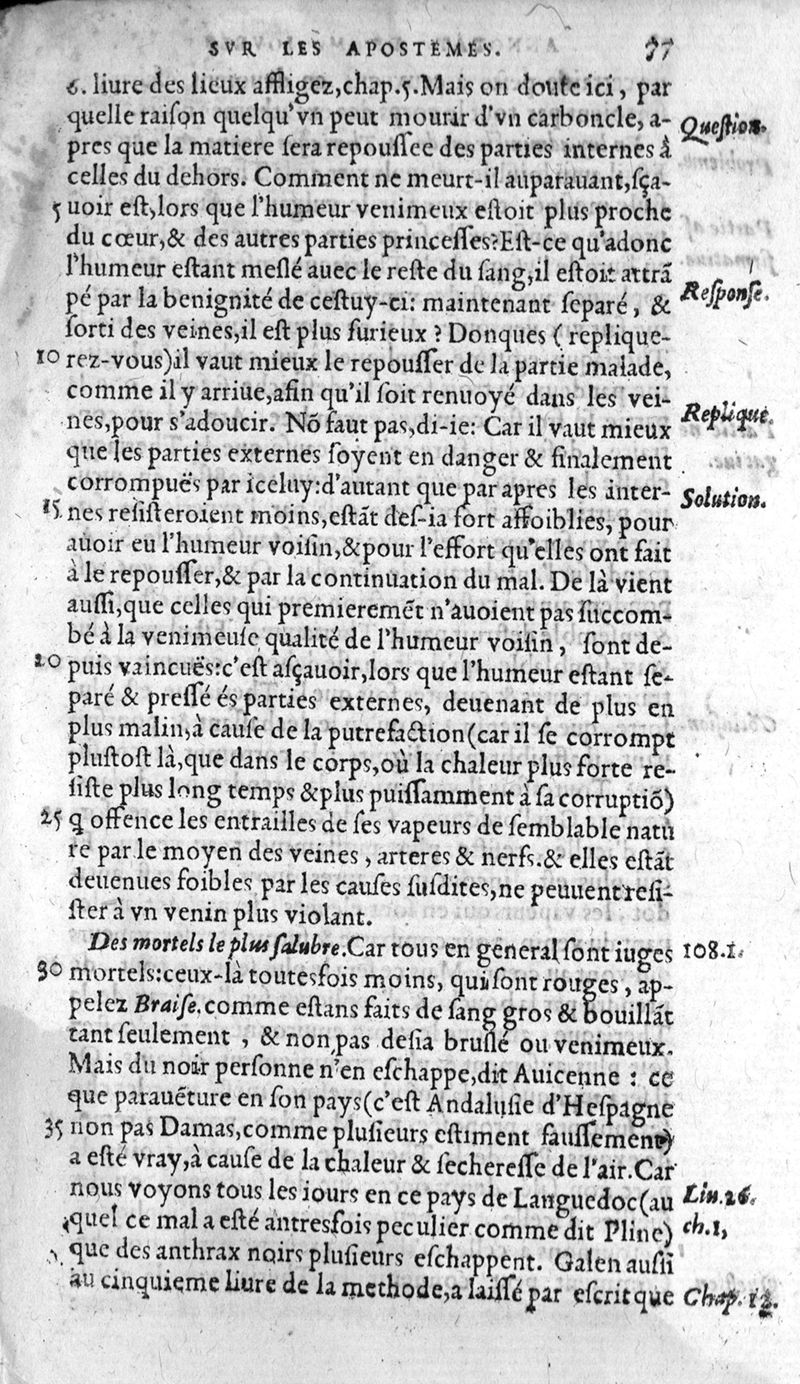 SVR LES APOSTEMES. 77
6. liure des lieux affligez,chap.5.Mais on doute ici, par
quelle raiſon quelqu'vn peut mourir d'vn carboncle, a- Queſtion.
pres que la matiere ſera repouſſee des parties internes à
celles du dehors. Comment ne meurt-il auparauant,ſça-
5 uoir eſt,lors que l'humeur venimeux eſtoit plus proche
du cœur,& des autres parties princeſſes?Eſt-ce qu'adonc
l'humeur eſtant meſlé auec le reſte du ſang,il eſtoit attrã
pé par la benignité de ceſtuy-ci: maintenant ſeparé, & Reſponſe.
ſorti des veines,il eſt plus furieux ? Donques ( replique-
10 rez-vous)il vaut mieux le repouſſer de la partie malade,
comme il y arriue,afin qu'il ſoit renuoyé dans les vei-
nes,pour s'adoucir. Nõ faut pas,di-ie: Car il vaut mieux Replique.
que les parties externes ſoyent en danger & finalement
corrompuës par iceluy:d'autant que par apres les inter- Solution.
15. nes reſiſteroient moins,eſtãt deſ-ia fort affoiblies, pour
auoir eu l'humeur voiſin,&pour l'effort qu'elles ont fait
à le repouſſer,& par la continuation du mal. De là vient
auſſi,que celles qui premieremẽt n'auoient pas ſuccom-
bé à la venimeuſe qualité de l'humeur voiſin, ſont de-
20 puis vaincuës:c'eſt aſçauoir,lors que l'humeur eſtant ſe-
paré & preſſé és parties externes, deuenant de plus en
plus malin,à cauſe de la putrefaction(car il ſe corrompt
pluſtoſt là,que dans le corps,où la chaleur plus forte re-
ſiſte plus long temps &plus puiſſamment à ſa corruptiõ)
25 q offence les entrailles de ſes vapeurs de ſemblable natu
re par le moyen des veines, arteres & nerfs.& elles eſtãt
deuenues foibles par les cauſes ſuſdites,ne peuuent reſi-
ſter à vn venin plus violant.
Des mortels le plus ſalubre.Car tous en general ſont iuges 108.1.
30 mortels:ceux-là toutesfois moins, qui ſont rouges, ap-
pelez Braiſe.comme eſtans faits de ſang gros & bouillãt
tant ſeulement , & non pas deſia bruſlé ou venimeux.
Mais du noir perſonne n'en eſchappe,dit Auicenne : ce
que parauẽture en ſon pays(c'eſt Andaluſie d'Heſpagne
35 non pas Damas,comme pluſieurs eſtiment fauſſement)
a eſté vray,à cauſe de la chaleur & ſechereſſe de l'air.Car
nous voyons tous les iours en ce pays de Languedoc(au Liu.26.
quel ce mal a eſté antresfois peculier comme dit Pline) ch.1,
que des anthrax noirs pluſieurs eſchappent. Galen auſſi
au cinquieme liure de la methode,a laiſſé par eſcrit que Chap. 12.